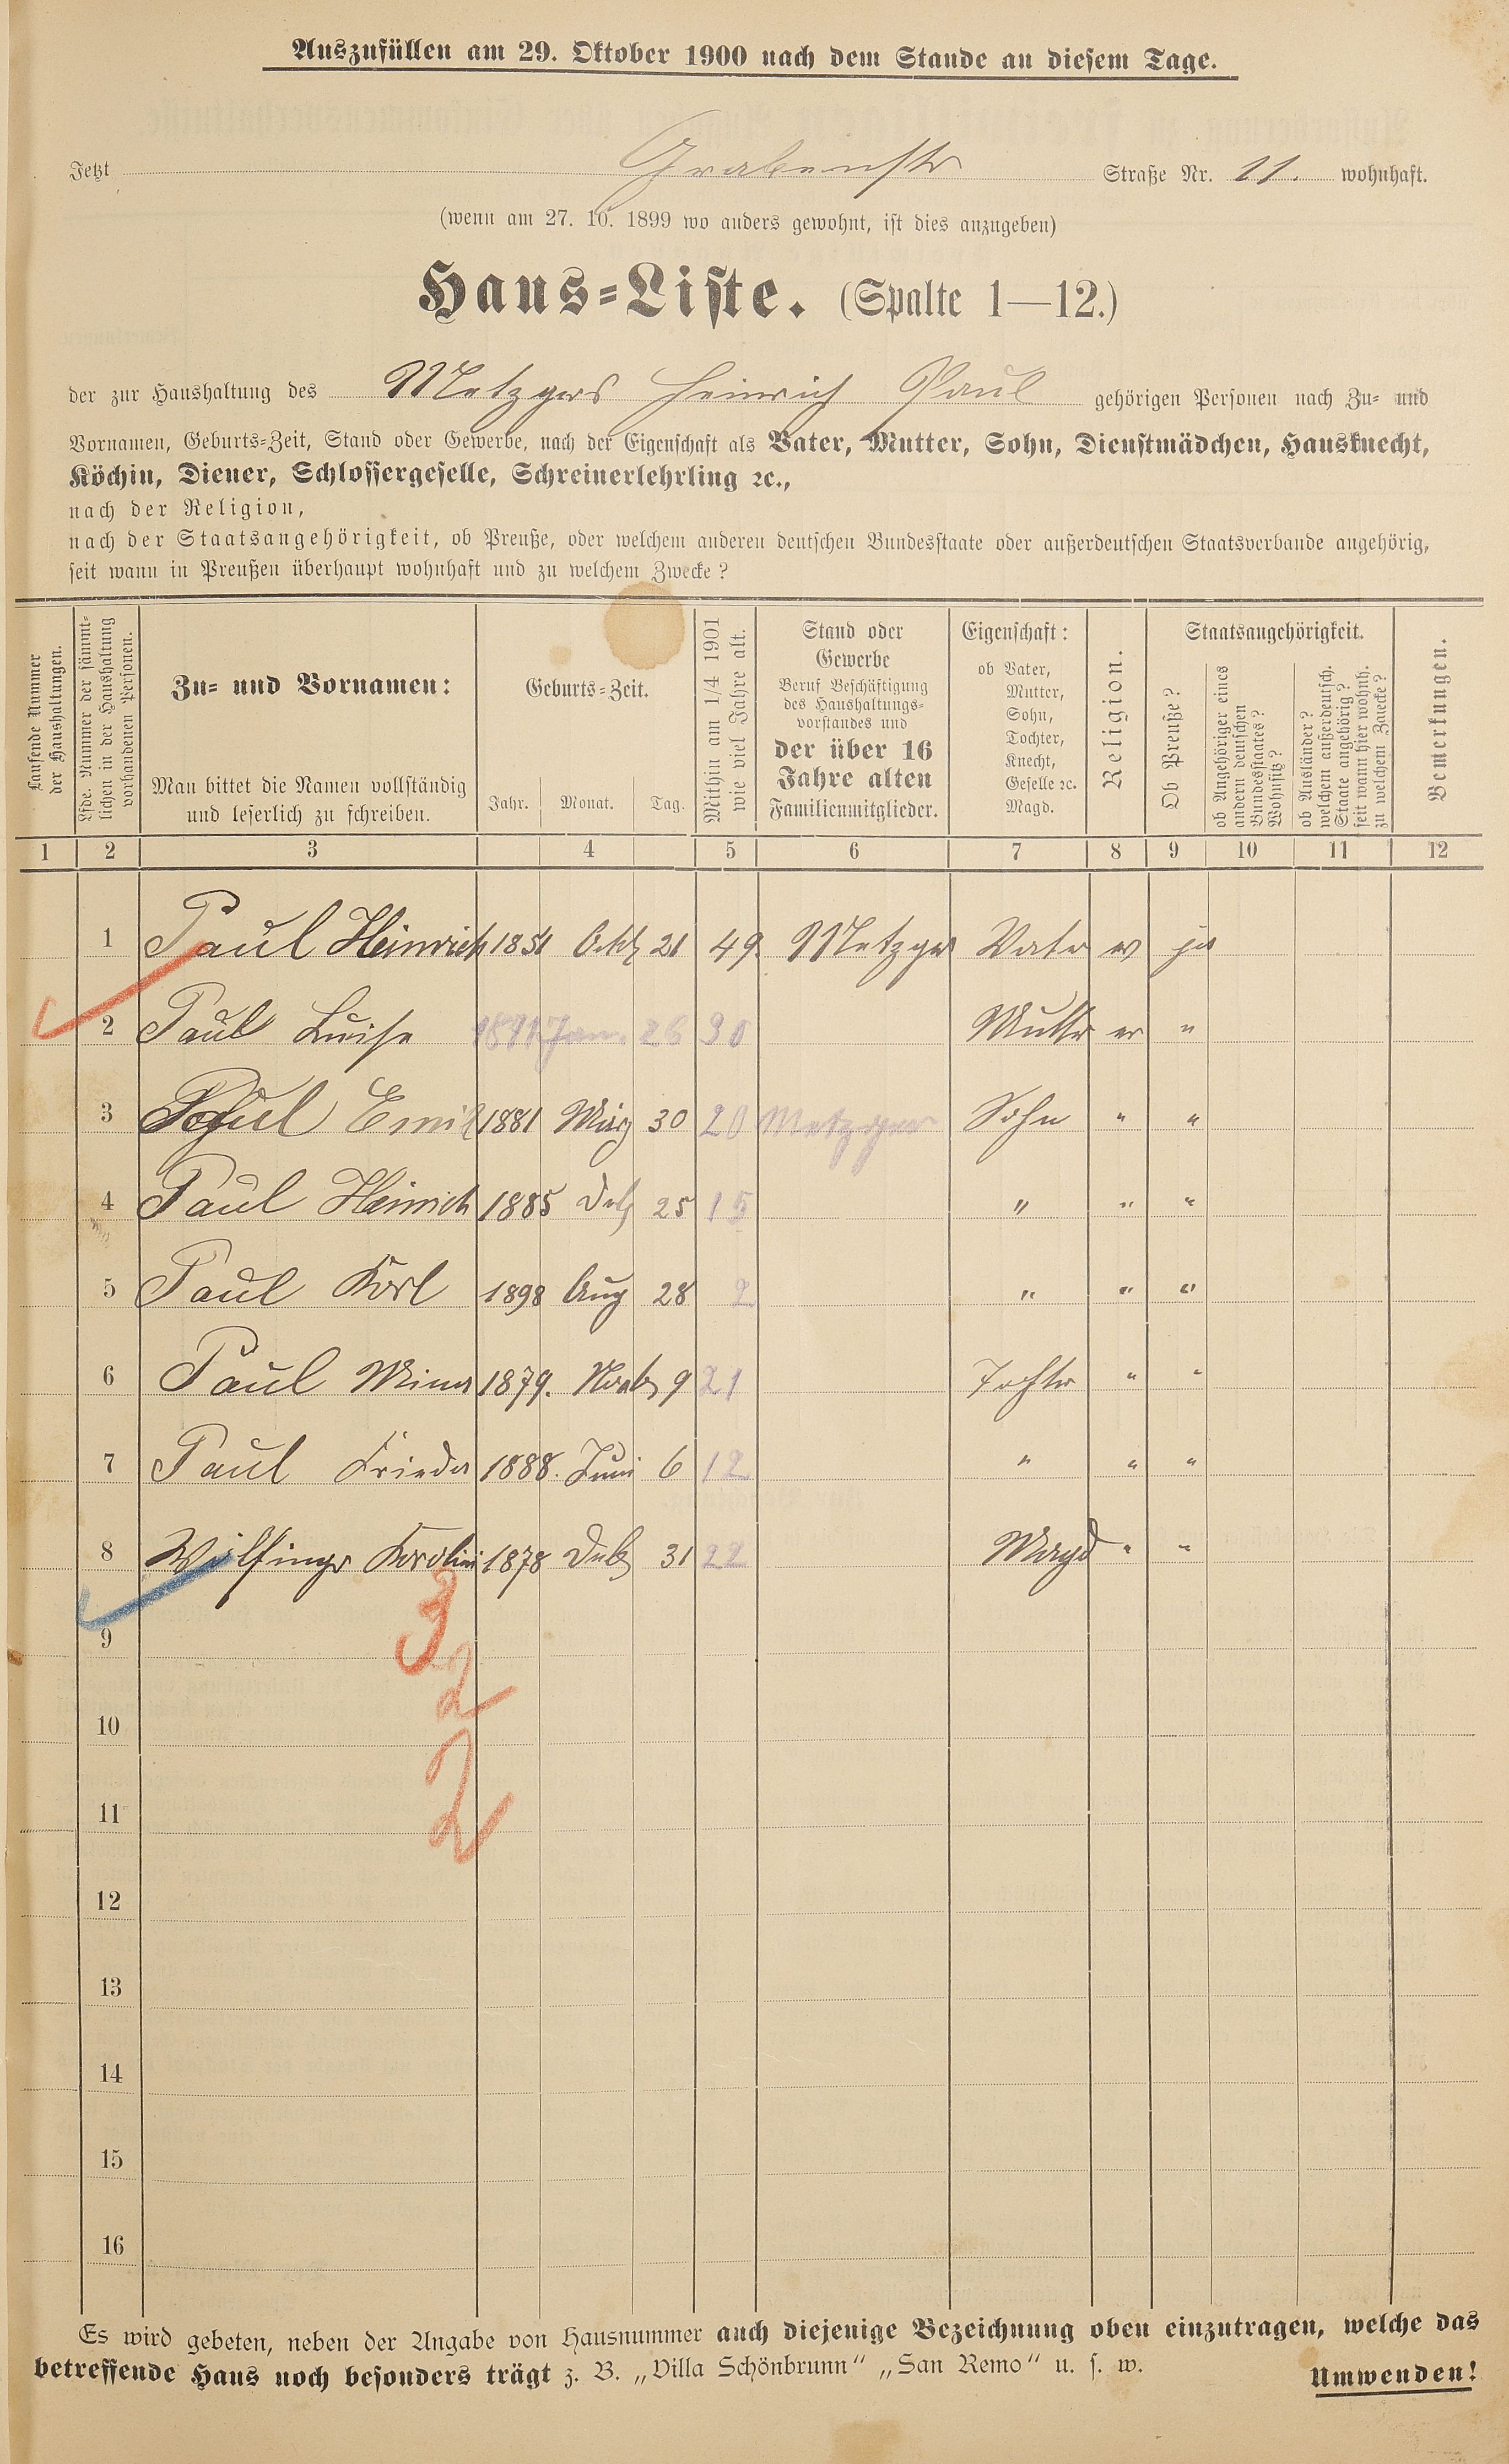 Auszufüllen am 29. Oktober 1900 nach dem Stande an diesem Tage.
Jetzt Grabenstr Straße Nr. 11. wohnhaft.
(wenn am 27. 10. 1899 wo anders gewohnt, ist dies anzugeben)
Haus-Liste. (Spalte 1—12.)
der zur Haushaltung des Metzgers Heinrich Paul gehörigen Personen nach Zu- und
Vornamen, Geburts-Zeit, Stand oder Gewerbe, nach der Eigenschaft als Vater, Mutter, Sohn, Dienstmädchen, Hausknecht,
Köchin, Diener, Schlossergeselle, Schreinerlehrling ꝛc.,
nach der Religion,
nach der Staatsangehörigkeit, ob Preuße, oder welchem anderen deutschen Bundesstaate oder außerdeutschen Staatsverbande angehörig,
seit wann in Preußen überhaupt wohnhaft und zu welchem Zwecke?
Laufende Nummer
der Haushaltungen.
Lfde. Nummer der sämmt-
lichen in der Haushaltung
vorhandenen Personen.
Zu- und Vornamen:
Man bittet die Namen vollständig
und leserlich zu schreiben.
Geburts-Zeit.
Jahr. Monat. Tag.
Mithin am 1/4 1901
wie viel Jahre alt.
Stand oder
Gewerbe
Beruf Beschäftigung
des Haushaltungs-
vorstandes und
der über 16
Jahre alten
Familienmitglieder.
Eigenschaft:
ob Vater,
Mutter,
Sohn,
Tochter,
Knecht,
Geselle ꝛc.
Magd.
Religion.
Staatsangehörigkeit.
Ob Preuße?
ob Angehöriger eines
andern deutschen
Bundesstaates?
Wohnsitz?
ob Ausländer?
welchem außerdeutsch.
Staate angehörig?
seit wann hier wohnh.
zu welchem Zwecke?
Bemerkungen.
1 2 3 4 5 6 7 8 9 10 11 12
1 Paul Heinrich 1851 Octb 21 49 Metzger Vater ev ja
2 Paul Luise Jan. 26 30 Mutter ev "
3 Paul Emil 1881 März 30 20 Metzger Sohn " "
4 Paul Heinrich 1885 Dez 25 15 " " "
5 Paul Karl 1898 Aug 28 2 " " "
6 Paul Mina 1879. Novb 9 21 Tochter " "
7 Paul Frieda 1888. Juni 6 12 " " "
8 1878 Dez 31 22 Magd " "
9
3
2
10
2
11
12
13
14
15
16
Es wird gebeten, neben der Angabe von Hausnummer auch diejenige Bezeichnung oben einzutragen, welche das
betreffende Haus noch besonders trägt z. B. „Villa Schönbrunn“ „San Remo“ u. s. w.
Umwenden!